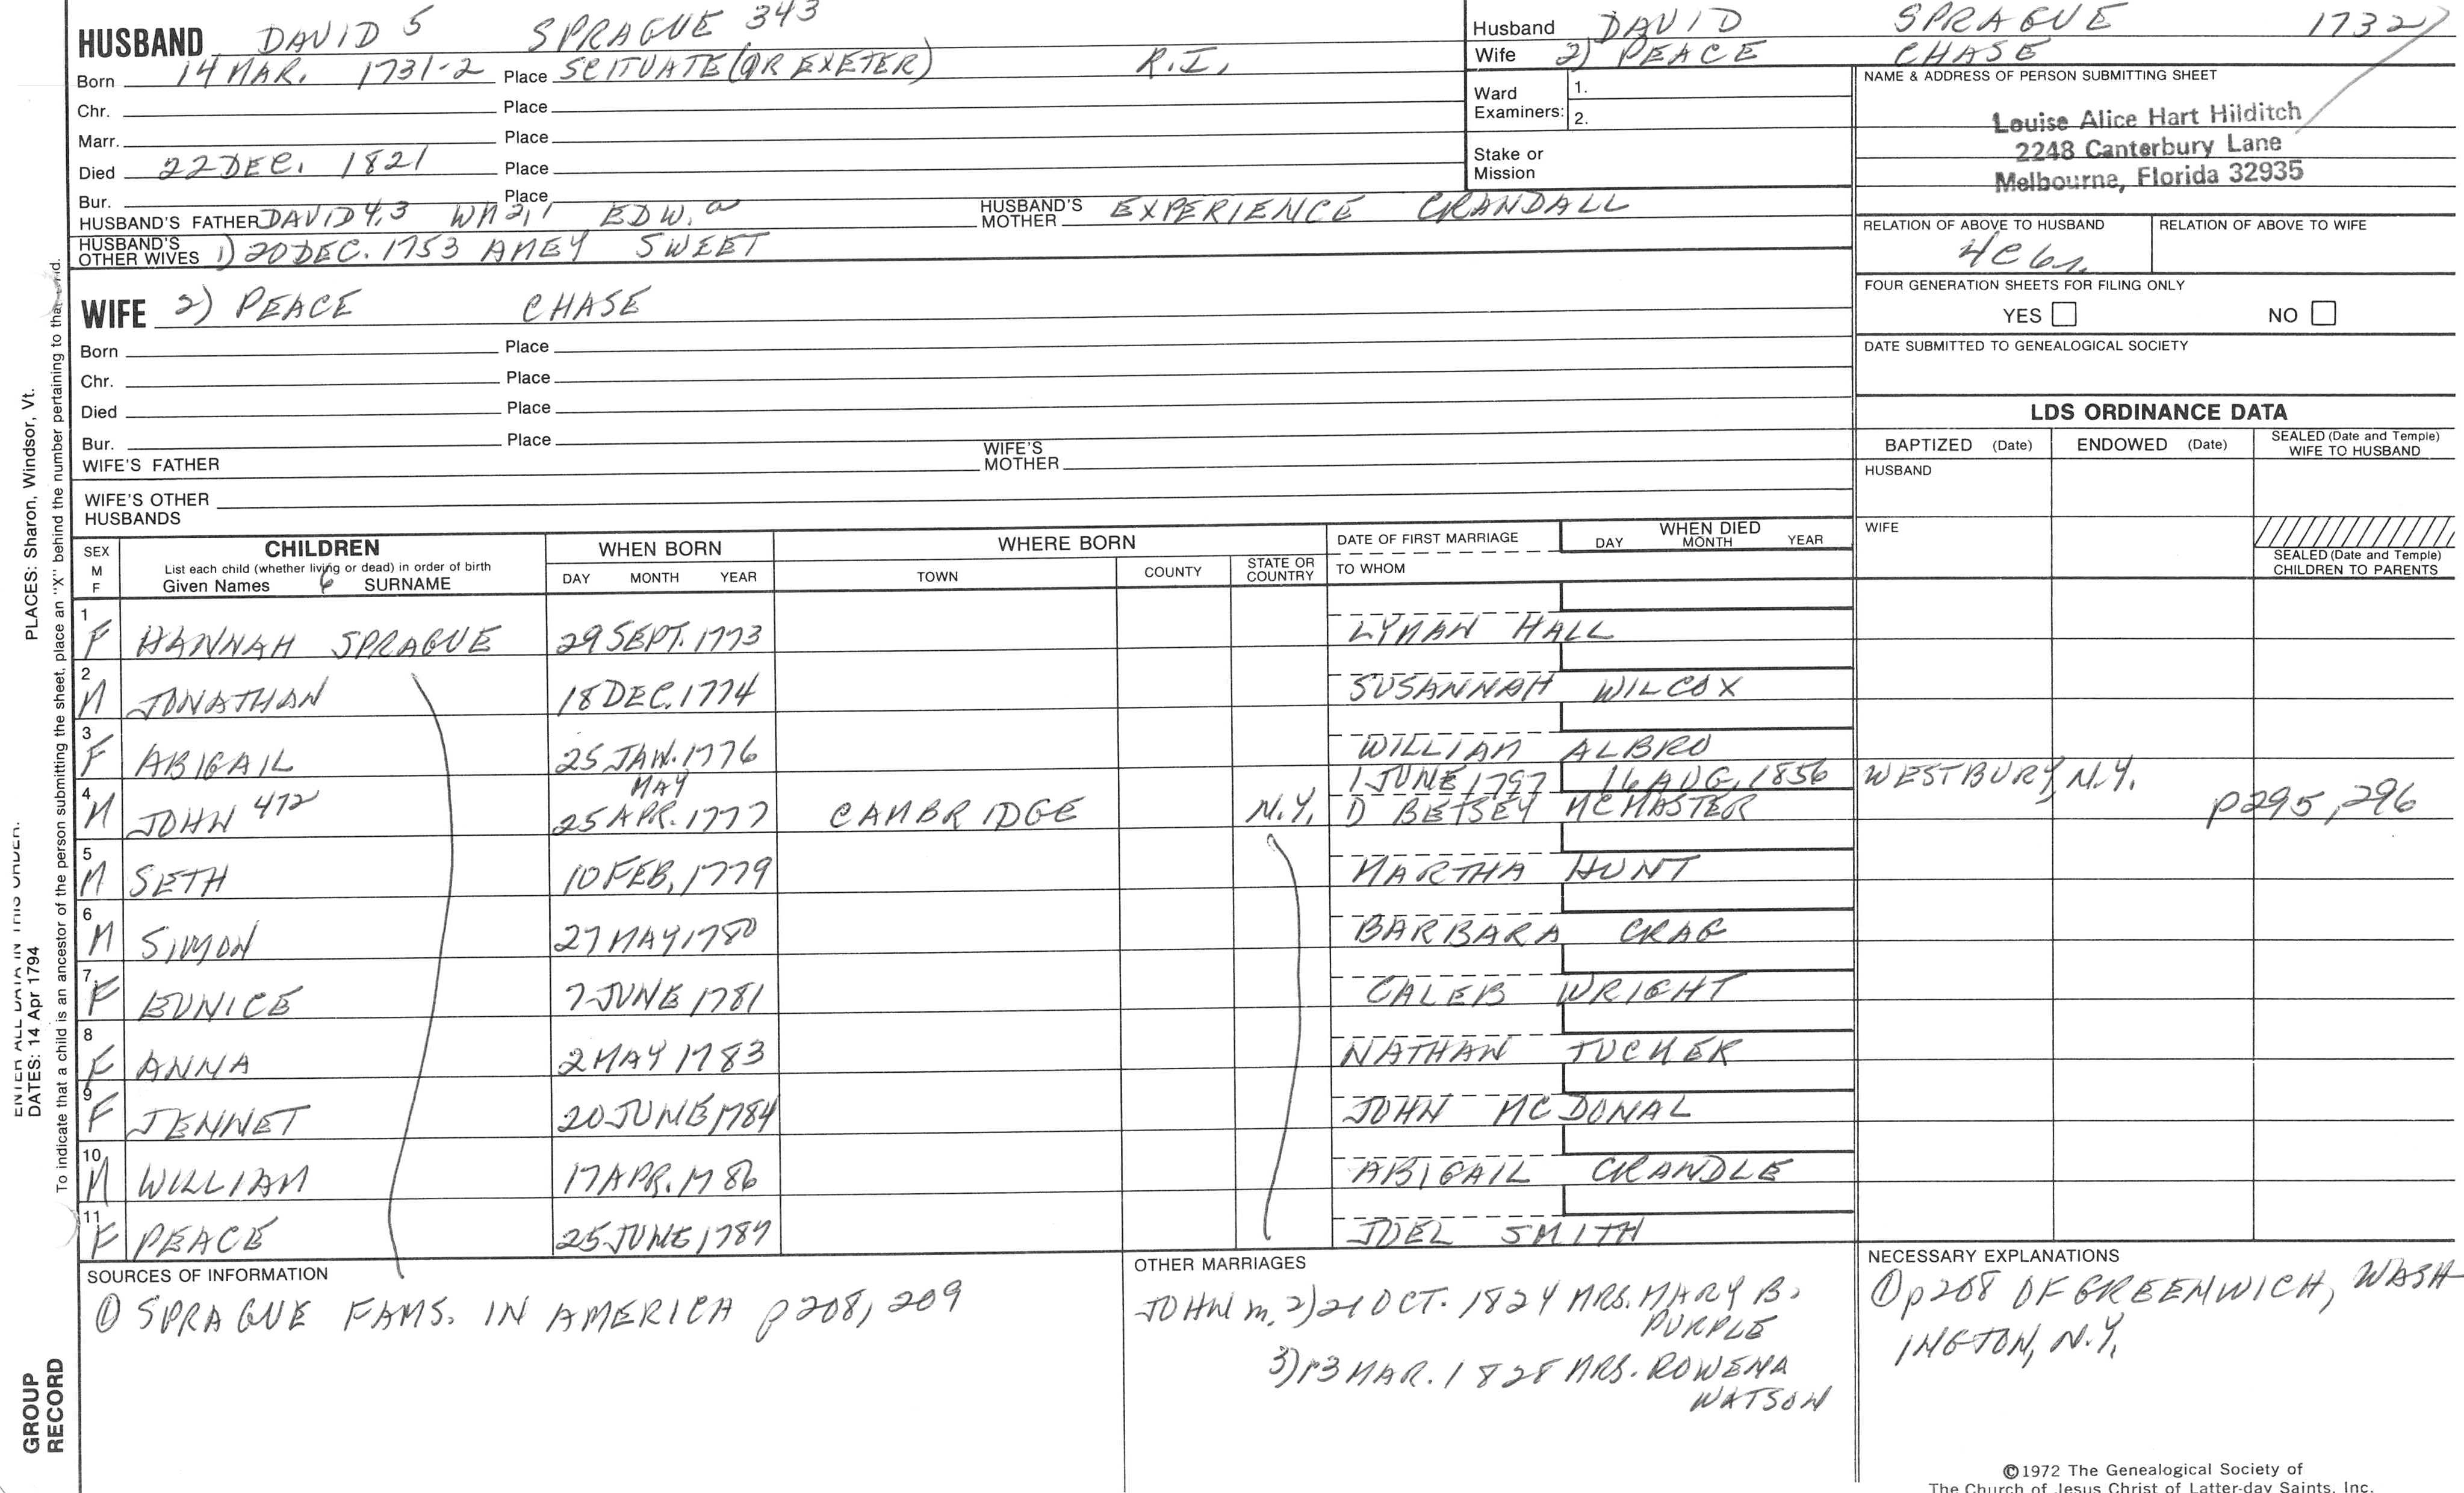 HUSBAND DAVID 5 SPRAGUE 343
Born 14 MAR. 1731-2 Place SCITUATE (OR EXETER) R.I.
Chr. Place
Marr. Place
Died 22 DEC. 1821 Place
Bur. Place
HUSBAND'S FATHER DAVID 4,3 WM 2,1 EDW. a HUSBAND'S MOTHER EXPERIENCE CRANDALL
HUSBAND'S OTHER WIVES 1) 20 DEC. 1753 AMEY SWEET
Husband DAVID SPRAGUE 1732
Wife 2) PEACE CHASE
Ward Examiners: 1.
2.
Stake or Mission
NAME & ADDRESS OF PERSON SUBMITTING SHEET
Louise Alice Hart Hilditch
2248 Canterbury Lane
Melbourne, Florida 32935
RELATION OF ABOVE TO HUSBAND RELATION OF ABOVE TO WIFE
4C6r
FOUR GENERATION SHEETS FOR FILING ONLY
YES NO
DATE SUBMITTED TO GENEALOGICAL SOCIETY
WIFE 2) PEACE CHASE
Born Place
Chr. Place
Died Place
Bur. Place
WIFE'S FATHER WIFE'S MOTHER
WIFE'S OTHER HUSBANDS
LDS ORDINANCE DATA
BAPTIZED (Date) ENDOWED (Date) SEALED (Date and Temple) WIFE TO HUSBAND
HUSBAND
WIFE
SEALED (Date and Temple) CHILDREN TO PARENTS
SEX M F CHILDREN WHEN BORN WHERE BORN DATE OF FIRST MARRIAGE WHEN DIED
List each child (whether living or dead) in order of birth
Given Names 6 SURNAME DAY MONTH YEAR TOWN COUNTY STATE OR COUNTRY TO WHOM DAY MONTH YEAR
1 F HANNAH SPRAGUE 29 SEPT. 1773 LYMAN HALL
2 M JONATHAN 18 DEC. 1774 SUSANNAH WILCOX
3 F ABIGAIL 25 JAN. 1776 WILLIAM ALBRO
MAY 1 JUNE 1797 16 AUG, 1856 WESTBURY, N.Y.
4 M JOHN 472 25 APR. 1777 CAMBRIDGE N.Y. 1) BETSEY MCMASTER p295, 296
5 M SETH 10 FEB, 1779 MARTHA HUNT
6 M SIMON 27 MAY 1780 BARBARA CRAG
7 F EUNICE 7 JUNE 1781 CALEB WRIGHT
8 F ANNA 2 MAY 1783 NATHAN TUCKER
9 F JENNET 20 JUNE 1784 JOHN MCDONAL
10 M WILLIAM 17 APR. 1786 ABIGAIL CRANDLE
11 F PEACE 25 JUNE 1787 JOEL SMITH
SOURCES OF INFORMATION
① SPRAGUE FAMS. IN AMERICA p208, 209
OTHER MARRIAGES
JOHN m. 2) 21 OCT. 1824 MRS. MARY B.
PURPLE
3) 13 MAR. 1828 MRS. ROWENA
WATSON
NECESSARY EXPLANATIONS
① p208 OF GREENWICH, WASH
INGTON, N.Y.
©1972 The Genealogical Society of
The Church of Jesus Christ of Latter-day Saints, Inc.
PLACES: Sharon, Windsor, Vt.
To indicate that a child is an ancestor of the person submitting the sheet, place an "X" behind the number pertaining to that
ENTER ALL DATA IN THIS ORDER:
DATES: 14 Apr 1794
GROUP
RECORD